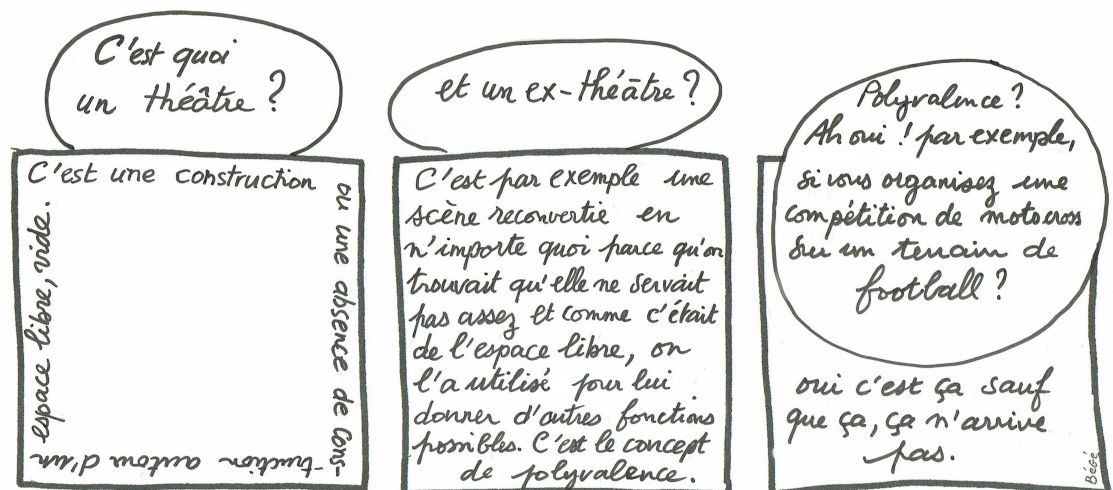 C'est quoi
un théâtre ?
C'est une construction
ou une absence de Cons-
-truction autour d'un
espace libre, vide.
et un ex-théâtre ?
C'est par exemple une
scène reconvertie en
n'importe quoi parce qu'on
trouvait qu'elle ne servait
pas assez et comme c'était
de l'espace libre, on
l'a utilisé pour lui
donner d'autres fonctions
possibles. C'est le concept
de polyvalence.
Polyvalence ?
Ah oui ! par exemple,
si vous organisez une
compétition de motocross
sur un terrain de
football ?
oui c'est ça sauf
que ça, ça n'arrive
pas.
BéGé